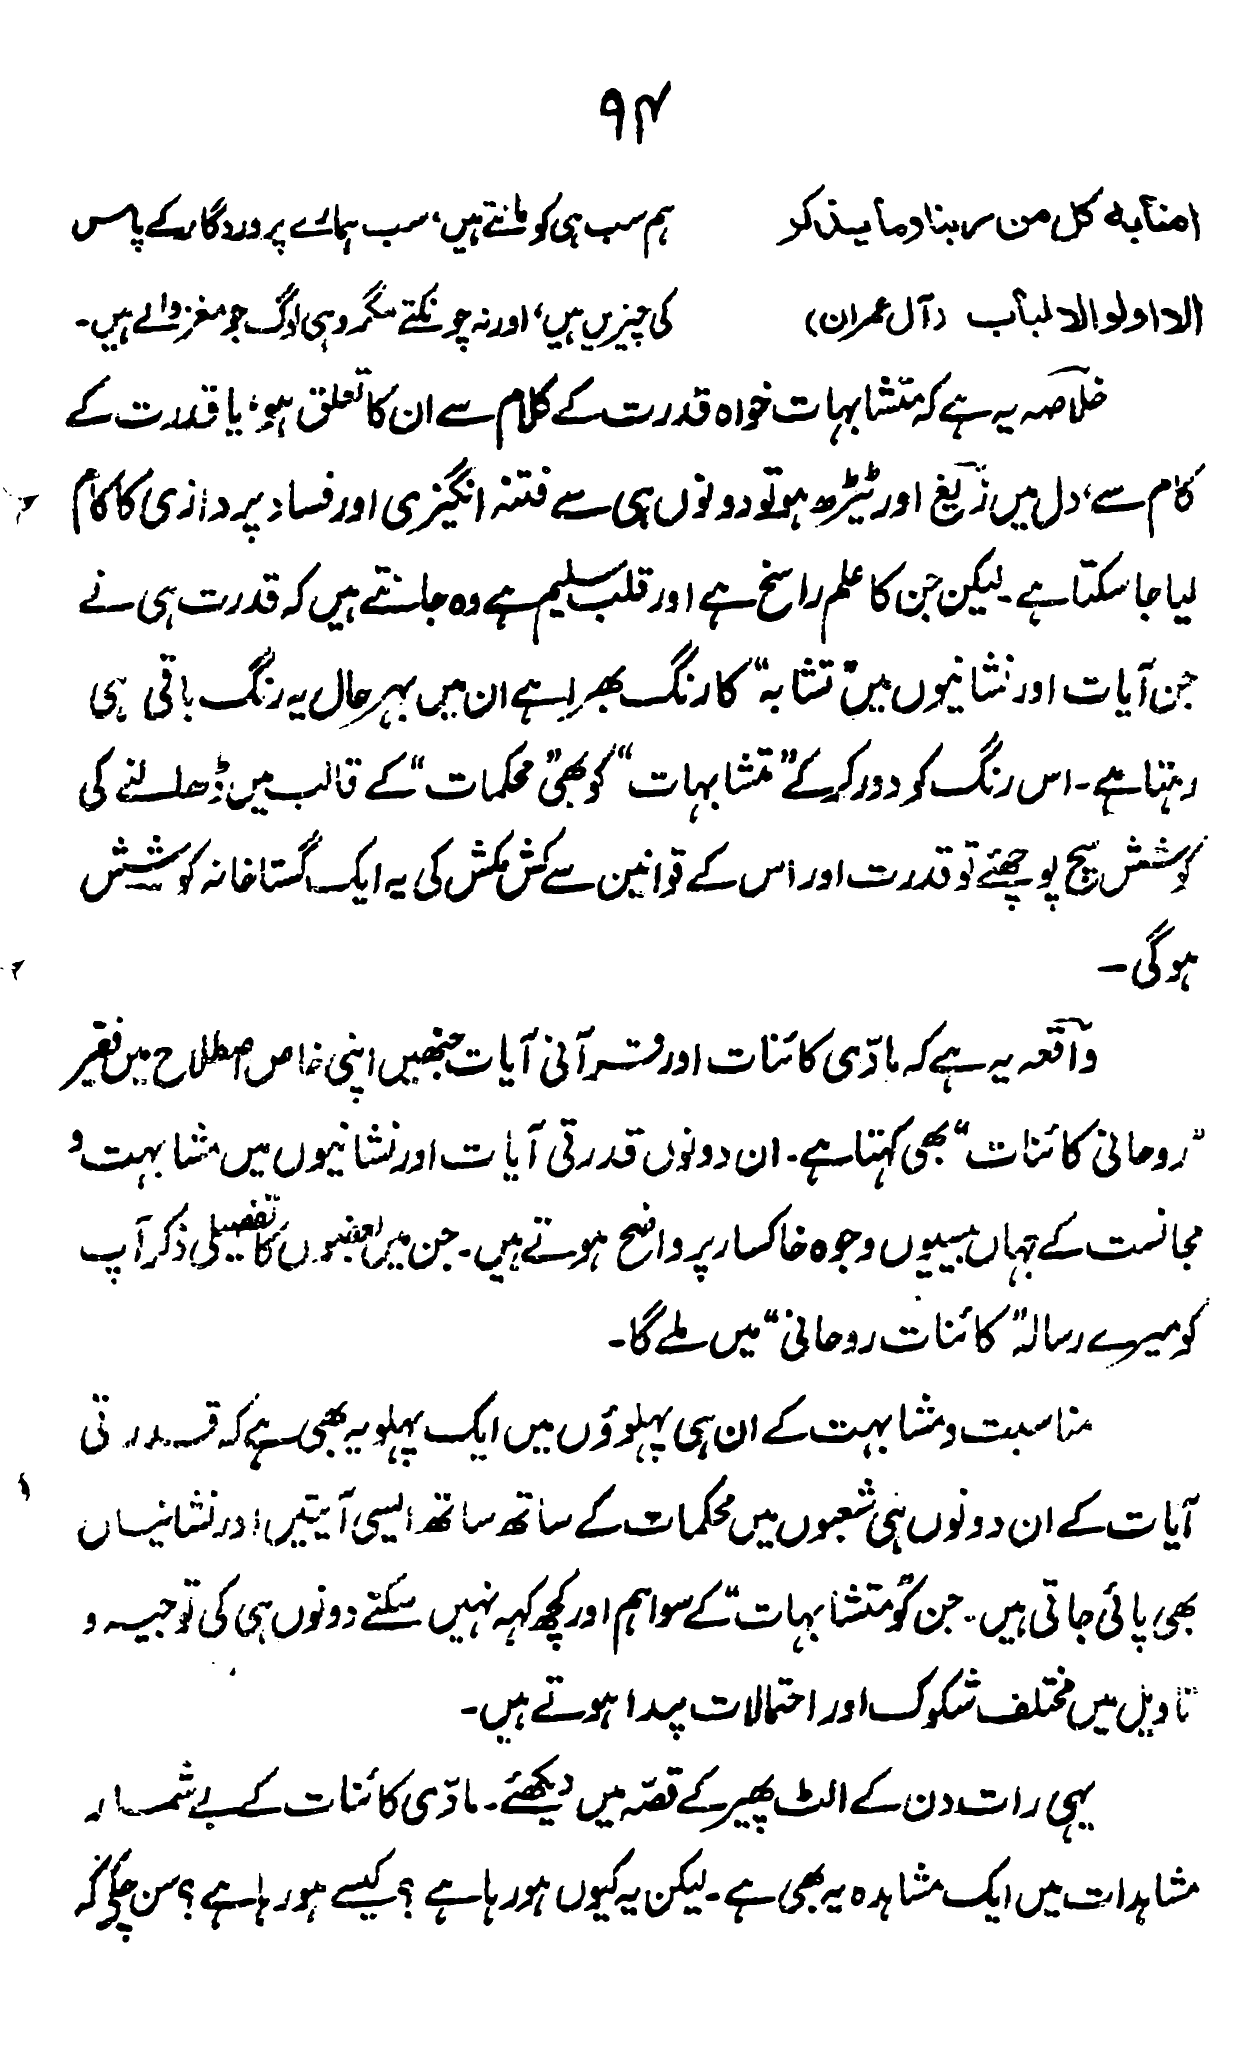 ۹۴
امنا به کل من ربنا وما یذکر ہم سب ہی کو مانتے ہیں، سب ہمارے پروردگار کے پاس
الا اولوا الالباب (آل عمران) کی چیزیں ہیں، اور نہ چونکتے مگر وہی لوگ جو مغز والے ہیں۔
خلاصہ یہ ہے کہ متشابہات خواہ قدرت کے کلام سے ان کا تعلق ہو، یا قدرت کے
کام سے، دل میں زیغ اور ٹیڑھ ہو تو دونوں ہی سے فتنہ انگیزی اور فساد پردازی کا کام
لیا جا سکتا ہے۔ لیکن جن کا علم راسخ ہے اور قلب سلیم ہے وہ جانتے ہیں کہ قدرت ہی نے
جن آیات اور نشانیوں میں "تشابہ" کا رنگ بھرا ہے ان میں بہر حال یہ رنگ باقی ہی
رہتا ہے۔ اس رنگ کو دور کر کے "متشابہات" کو بھی "محکمات" کے قالب میں ڈھالنے کی
کوشش سچ پوچھئے تو قدرت اور اس کے قوانین سے کش مکش کی یہ ایک گستاخانہ کوشش
ہوگی۔
واقعہ یہ ہے کہ مادّی کائنات اور قرآنی آیات جنھیں اپنی خاص اصطلاح میں فقیر
"روحانی کائنات" بھی کہتا ہے۔ ان دونوں قدرتی آیات اور نشانیوں میں مشابہت و
مجانست کے جہاں بیسیوں وجوہ خاکسار پر واضح ہوتے ہیں۔ جن میں بعضوں کا تفصیلی ذکر آپ
کو میرے رسالہ "کائنات روحانی" میں ملے گا۔
مناسبت و مشابہت کے ان ہی پہلوؤں میں ایک پہلو یہ بھی ہے کہ قدرتی
آیات کے ان دونوں ہی شعبوں میں محکمات کے ساتھ ساتھ ایسی آیتیں اور نشانیاں
بھی پائی جاتی ہیں۔ جن کو "متشابہات" کے سوا ہم اور کچھ کہہ نہیں سکتے دونوں ہی کی توجیہ و
تاویل میں مختلف شکوک اور احتمالات پیدا ہوتے ہیں۔
یہی رات دن کے الٹ پھیر کے قصّہ میں دیکھئے۔ مادّی کائنات کے بے شمار
مشاہدات میں ایک مشاہدہ یہ بھی ہے۔ لیکن یہ کیوں ہو رہا ہے؟ کیسے ہو رہا ہے؟ سن چکے کہ